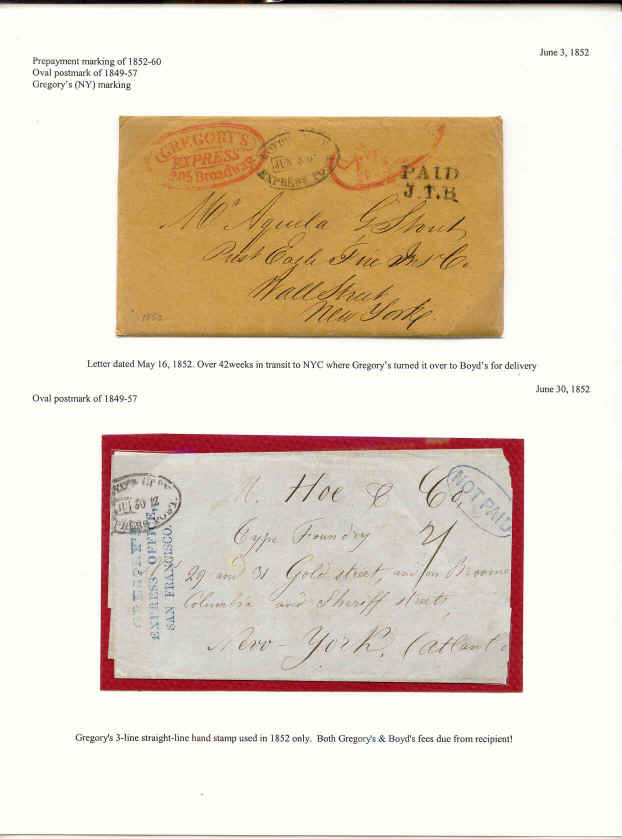 June 3, 1852
Prepayment marking of 1852-60
Oval postmark of 1849-57
Gregory's (NY) marking
GREGORY'S
EXPRESS
205 Broadway
JUN 3
EXPRESS PO
PAID
J.T.B
Mr Aquila G Stout
Prest Eagle Fire Ins Co.
Wall Street
New York
1852
Letter dated May 16, 1852. Over 42weeks in transit to NYC where Gregory's turned it over to Boyd's for delivery
June 30, 1852
Oval postmark of 1849-57
JUN 30
NOT PAID
GREGORY'S
EXPRESS OFFICE,
SAN FRANCISCO.
M. Hoe & Co,
Type Foundry
29 and 31 Gold street, and on Broome
Columbia and Sheriff streets
New-York. (Atlant
Gregory's 3-line straight-line hand stamp used in 1852 only. Both Gregory's & Boyd's fees due from recipient!